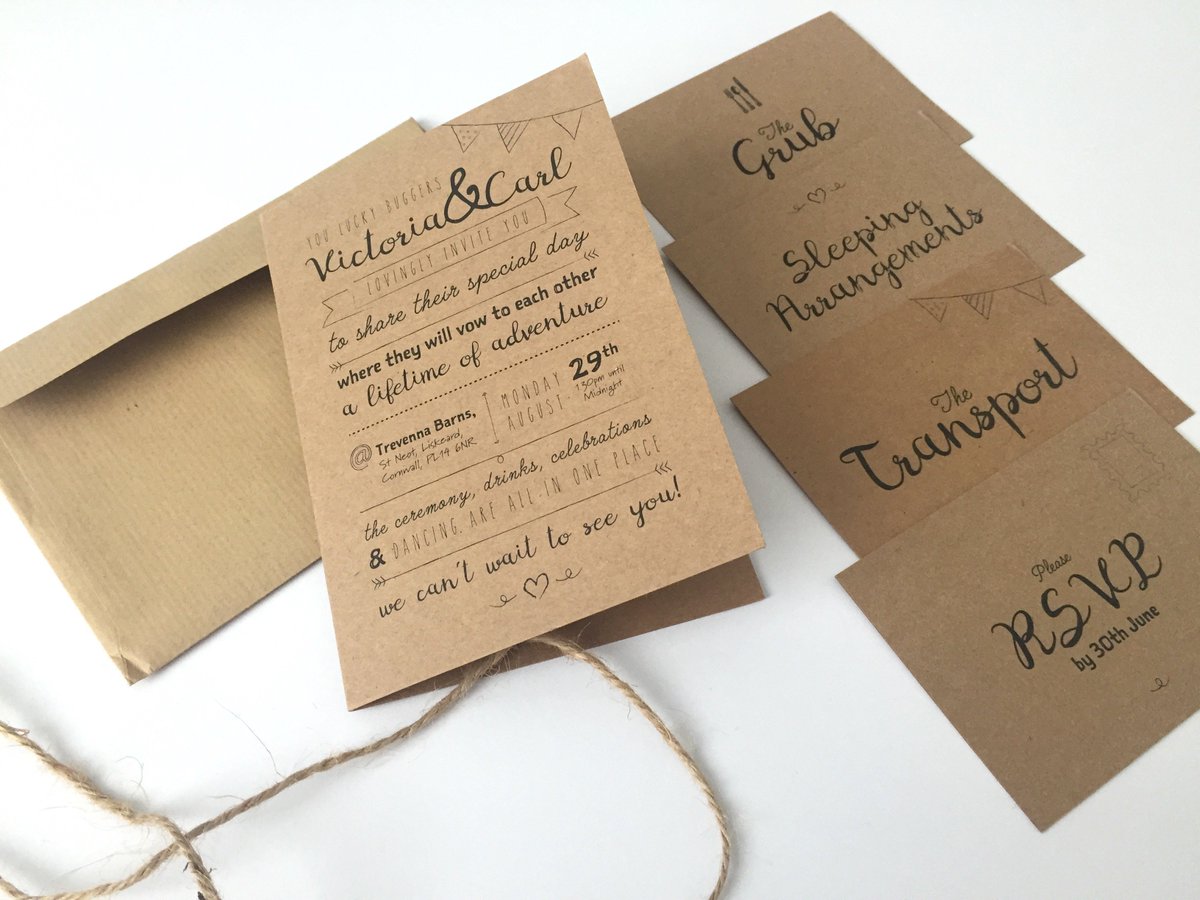 YOU LUCKY BUGGERS
Victoria & Carl
LOVINGLY INVITE YOU
to share their special day
where they will vow to each other
a lifetime of adventure
@ Trevenna Barns,
St Neot, Liskeard,
Cornwall, PL14 6NR
MONDAY
AUGUST
29th
1:30pm until
Midnight
the ceremony, drinks, celebrations
& DANCING ARE ALL IN ONE PLACE
we can't wait to see you!
The
Grub
Sleeping
Arrangements
The
Transport
Please
RSVP
by 30th June